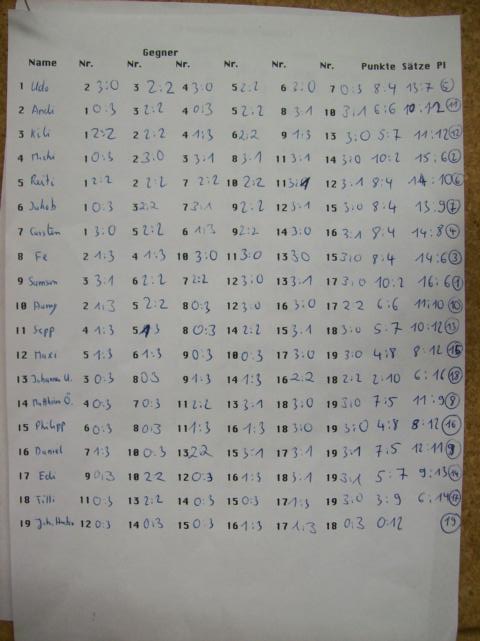 Gegner
Name Nr. Nr. Nr. Nr. Nr. Nr. Punkte Sätze Pl
1 Udo 2 3:0 3 2:2 4 3:0 5 2:2 6 2:0 7 0:3 8:4 13:7 5
2 Andi 1 0:3 3 2:2 4 0:3 5 2:2 8 3:1 10 3:1 6:6 10:12 11
3 Kili 1 2:2 2 2:2 4 1:3 6 2:2 9 1:3 13 3:0 5:7 11:12 12
4 Michi 1 0:3 2 3:0 3 3:1 8 3:1 11 3:1 14 3:0 10:2 15:6 2
5 1 2:2 2 2:2 7 2:2 10 2:2 11 12 3:1 8:4 14:10 6
6 Jakob 1 0:3 3 2:2 7 3:1 9 2:2 12 3:1 15 3:0 8:4 13:9 7
7 Carsten 1 3:0 5 2:2 6 1:3 9 2:2 14 3:0 16 3:1 8:4 14:8 4
8 Fe 2 1:3 4 1:3 10 3:0 11 3:0 13 3:0 15 3:0 8:4 14:6 3
9 Samson 3 3:1 6 2:2 7 2:2 12 3:0 13 3:1 17 3:0 10:2 16:6 1
10 2 1:3 5 2:2 8 0:3 12 3:0 16 3:0 17 2:2 6:6 11:10 10
11 Sepp 4 1:3 5 8 0:3 14 2:2 15 3:1 18 3:0 5:7 10:12 13
12 Maxi 5 1:3 6 1:3 9 0:3 10 0:3 17 3:0 19 3:0 4:8 8:12 15
13 Johannes U. 3 0:3 8 0:3 9 1:3 14 1:3 16 2:2 18 2:2 2:10 6:16 18
14 Matthias Ö. 4 0:3 7 0:3 11 2:2 13 3:1 18 3:0 19 3:0 7:5 11:9 8
15 Philipp 6 0:3 8 0:3 11 1:3 16 1:3 18 3:0 19 3:0 4:8 8:12 16
16 Daniel 7 1:3 10 0:3 13 2:2 15 3:1 17 3:1 19 3:1 7:5 12:11 9
17 Edi 9 0:3 10 2:2 12 0:3 16 1:3 18 3:1 19 3:1 5:7 9:13 14
18 Tilli 11 0:3 13 2:2 14 0:3 15 0:3 17 1:3 19 3:0 3:9 6:14 17
19 12 0:3 14 0:3 15 0:3 16 1:3 17 1:3 18 0:3 0:12 19